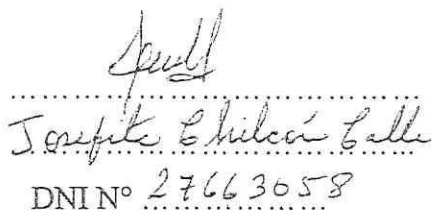 Josefita Chilcón Calle
DNI N° 27663058